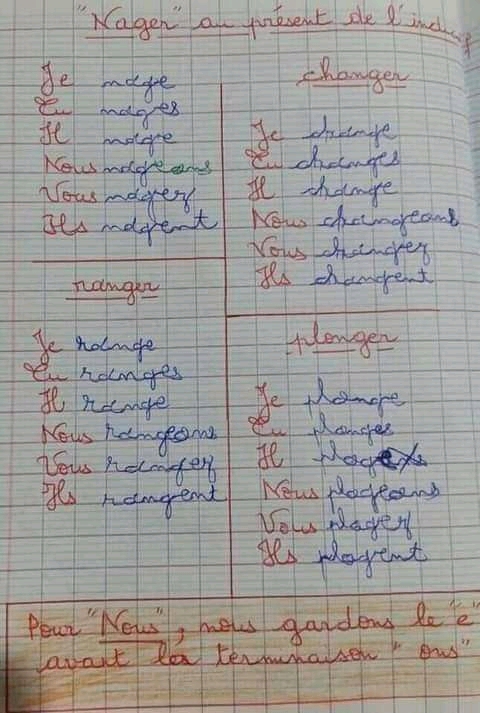 "Nager" au présent de l'indicatif
Je nage
Tu nages
Il nage
Nous nageons
Vous nagez
Ils nagent
changer
Je change
Tu changes
Il change
Nous changeons
Vous changez
Ils changent
ranger
Je range
Tu ranges
Il range
Nous rangeons
Vous rangez
Ils rangent
plonger
Je plonge
Tu plonges
Il
Nous plogeons
Vous plogez
Ils plogent
Pour "Nous", nous gardons le "e"
avant la terminaison "ons"